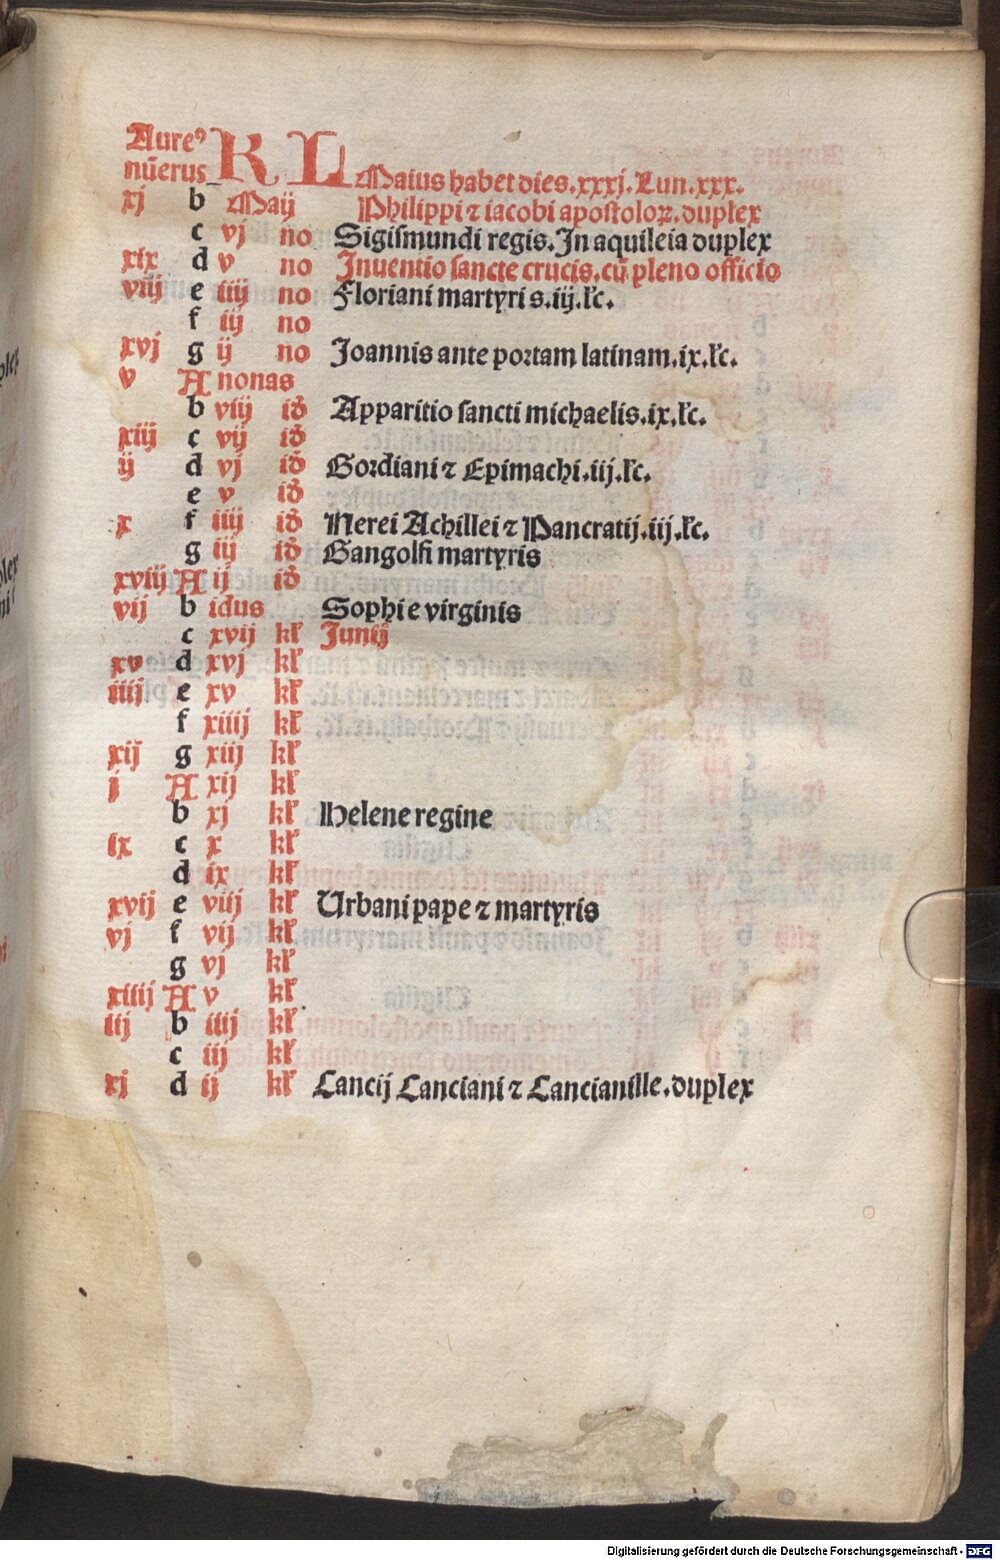 Aureꝰ
nūerus KL Maius habet dies.xxxj.Lun.xxx.
xj b Maij Philippi ⁊ iacobi apostoloꝝ.duplex
c vj no Sigismundi regis.In aquileia duplex
xix d v no Inuentio sancte crucis.cū pleno officio
viij e iiij no Floriani martyris.iij.lc̄.
f iij no
xvj g ij no Joannis ante portam latinam.ix.lc̄.
v A nonas
b viij id̄ Apparitio sancti michaelis.ix.lc̄.
xiij c vij id̄
ij d vj id̄ Gordiani ⁊ Epimachi.iij.lc̄.
e v id̄
x f iiij id̄ Nerei Achillei ⁊ Pancratij.iij.lc̄.
g iij id̄ Gangolfi martyris
xviij A ij id̄
vij b idus Sophie virginis
c xvij kl̄ Junij
xv d xvj kl̄
iiij e xv kl̄
f xiiij kl̄
xij g xiij kl̄
j A xij kl̄
b xj kl̄ Helene regine
ix c x kl̄
d ix kl̄
xvij e viij kl̄ Urbani pape ⁊ martyris
vj f vij kl̄
g vj kl̄
xiiij A v kl̄
iij b iiij kl̄
c iij kl̄
xj d ij kl̄ Cancij Canciani ⁊ Cancianille.duplex
Digitalisierung gefördert durch die Deutsche Forschungsgemeinschaft - DFG